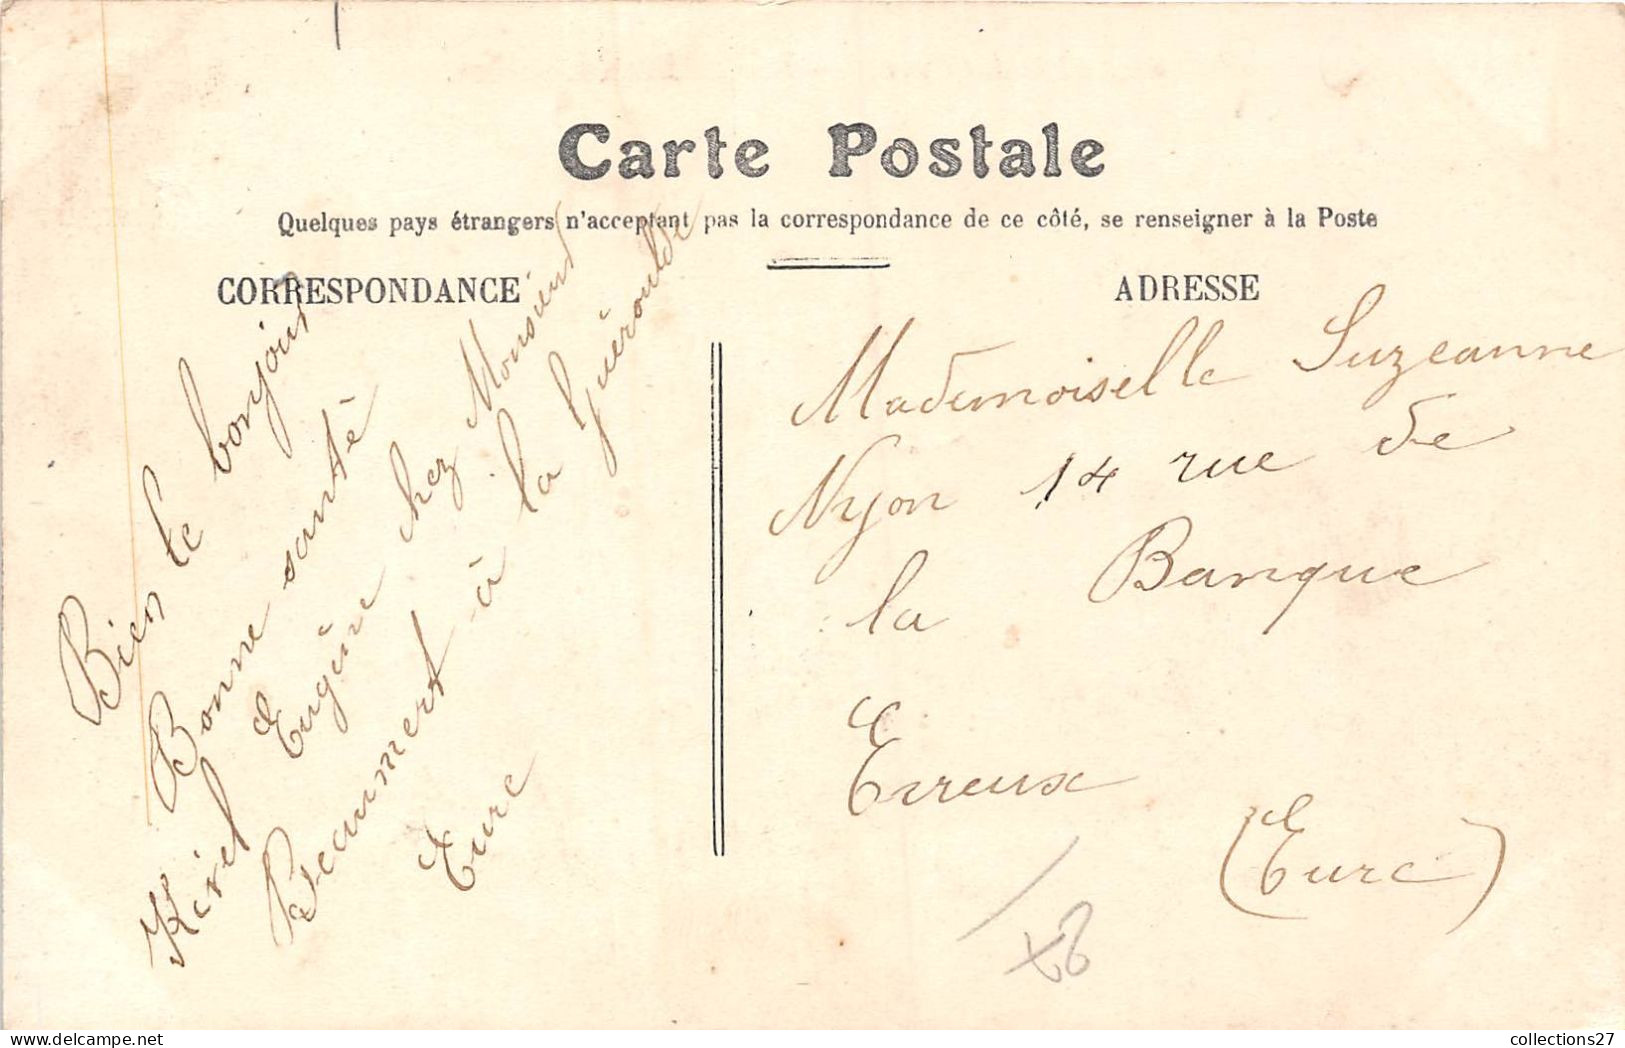 Carte Postale
Quelques pays étrangers n'acceptant pas la correspondance de ce côté, se renseigner à la Poste
CORRESPONDANCE
Bien le bonjour
Bonne santé
Kirel Eugène chez Monsieur
Beaumert à la Guéroulde
Eure
ADRESSE
Mademoiselle Suzeanne
Nyon 14 rue de
la Banque
Evreux
(Eure)
collections27